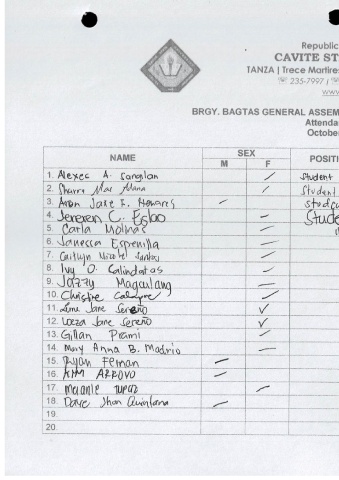 Republic
CAVITE ST
TANZA | Trece Martires
☏ 235-7997 |
www
BRGY. BAGTAS GENERAL ASSEM
Attenda
October
NAME SEX POSITI
M F
1. Alexec A. Student
2. Sharri Mae Student
3. Aron Jake F. –
4. Jeneren C. Eslao – Stude
5. Carla Molinas –
6. Janessa Espenilla –
7. Caitlyn Nicole Santos –
8. Ivy O. Calindatas –
9. Jazzy Magaulang –
10. Christine
11. Lyme Jane Sereño ✓
12. Loeza Jane Sereño ✓
13. Gillian Prami –
14. Mary Anna B. Madrio –
15. Ryan Fernan –
16. KIM ARROYO –
17. Melanie Tupaz –
18. Dave Jhon Quintana –
19.
20.